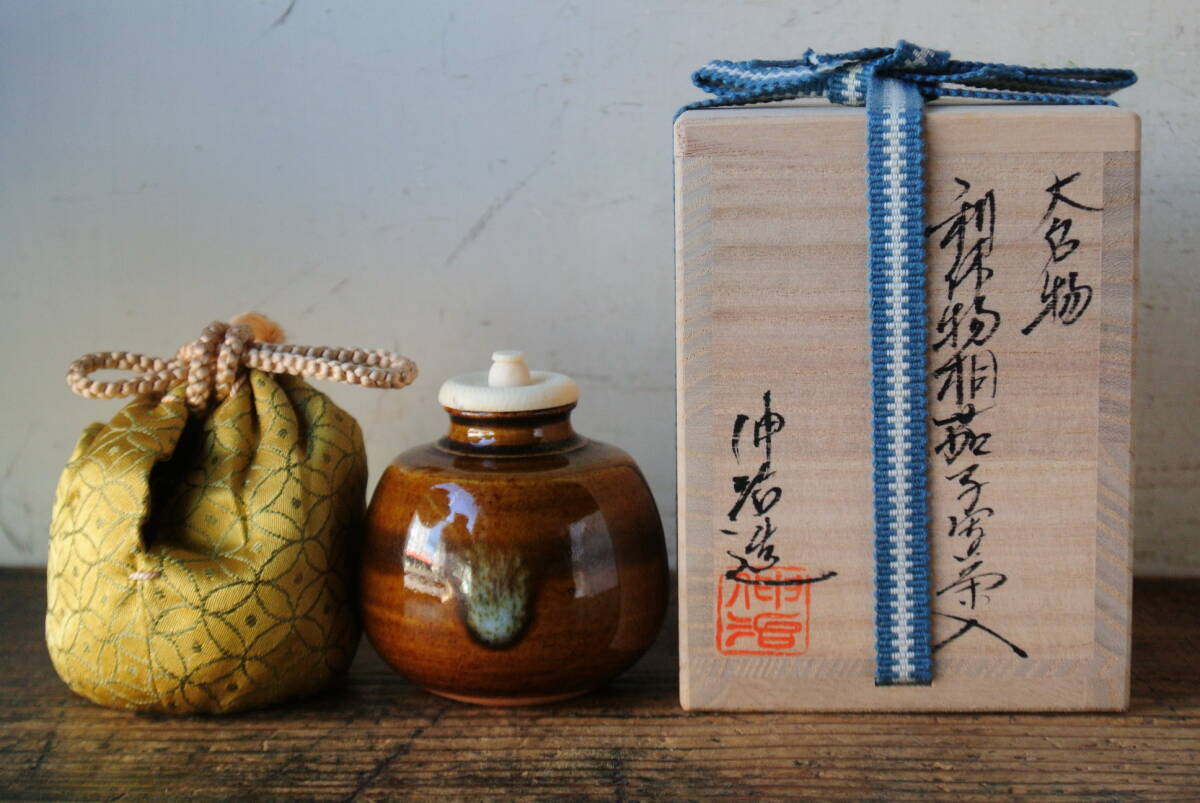 大名物
利休物相茄子写茶入
伸治造
伸治